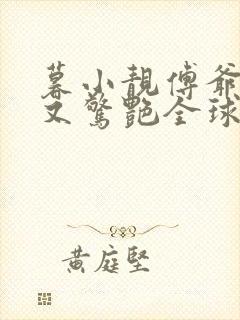 暮小靚傅爺
又驚艷全球
黃庭堅